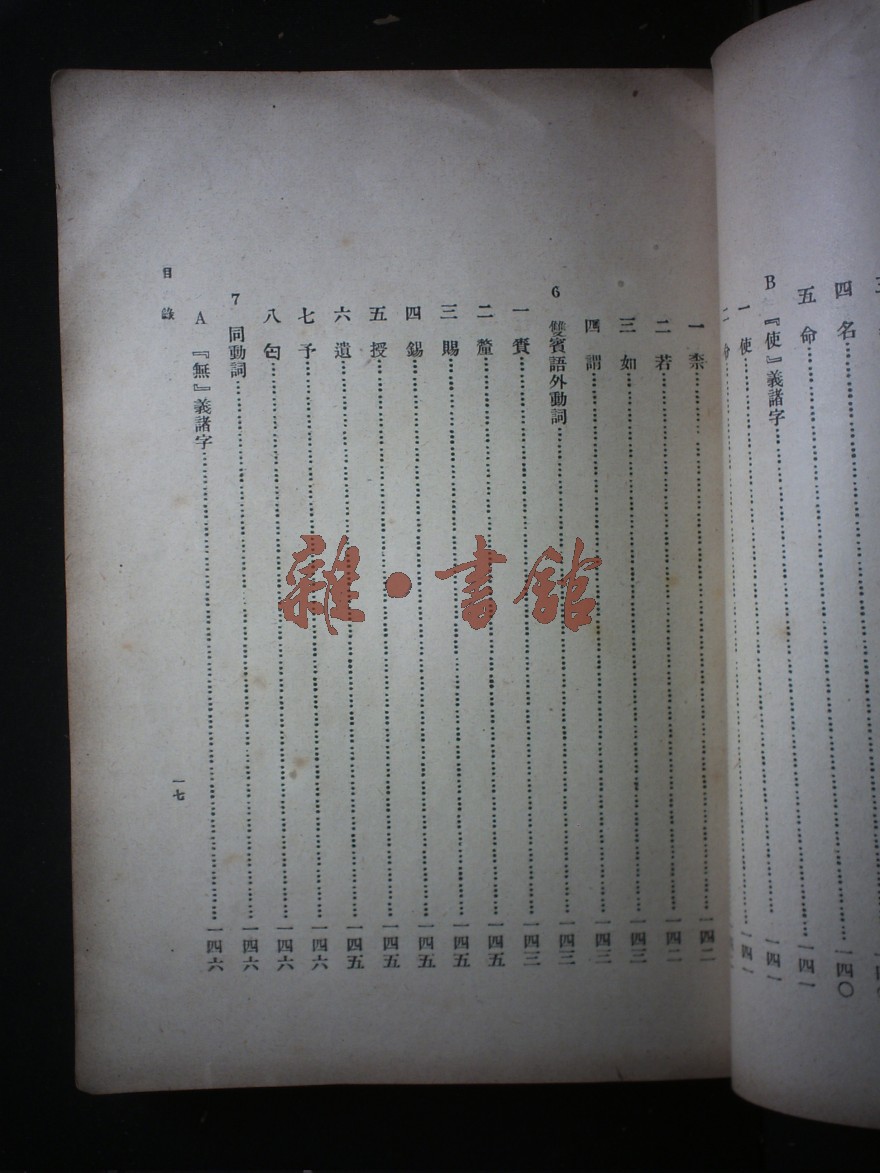 四 名……一四〇
五 命……一四一
B 『使』義諸字……一四一
一 使……一四一
一 柰……一四二
二 若……一四二
三 如……一四三
四 謂……一四三
6 雙賓語外動詞……一四三
一 賚……一四三
二 釐……一四五
三 賜……一四五
四 錫……一四五
五 授……一四五
六 遺……一四五
七 予……一四六
八 匄……一四六
7 同動詞……一四六
A 『無』義諸字……一四六
目錄
一七
雜·書館